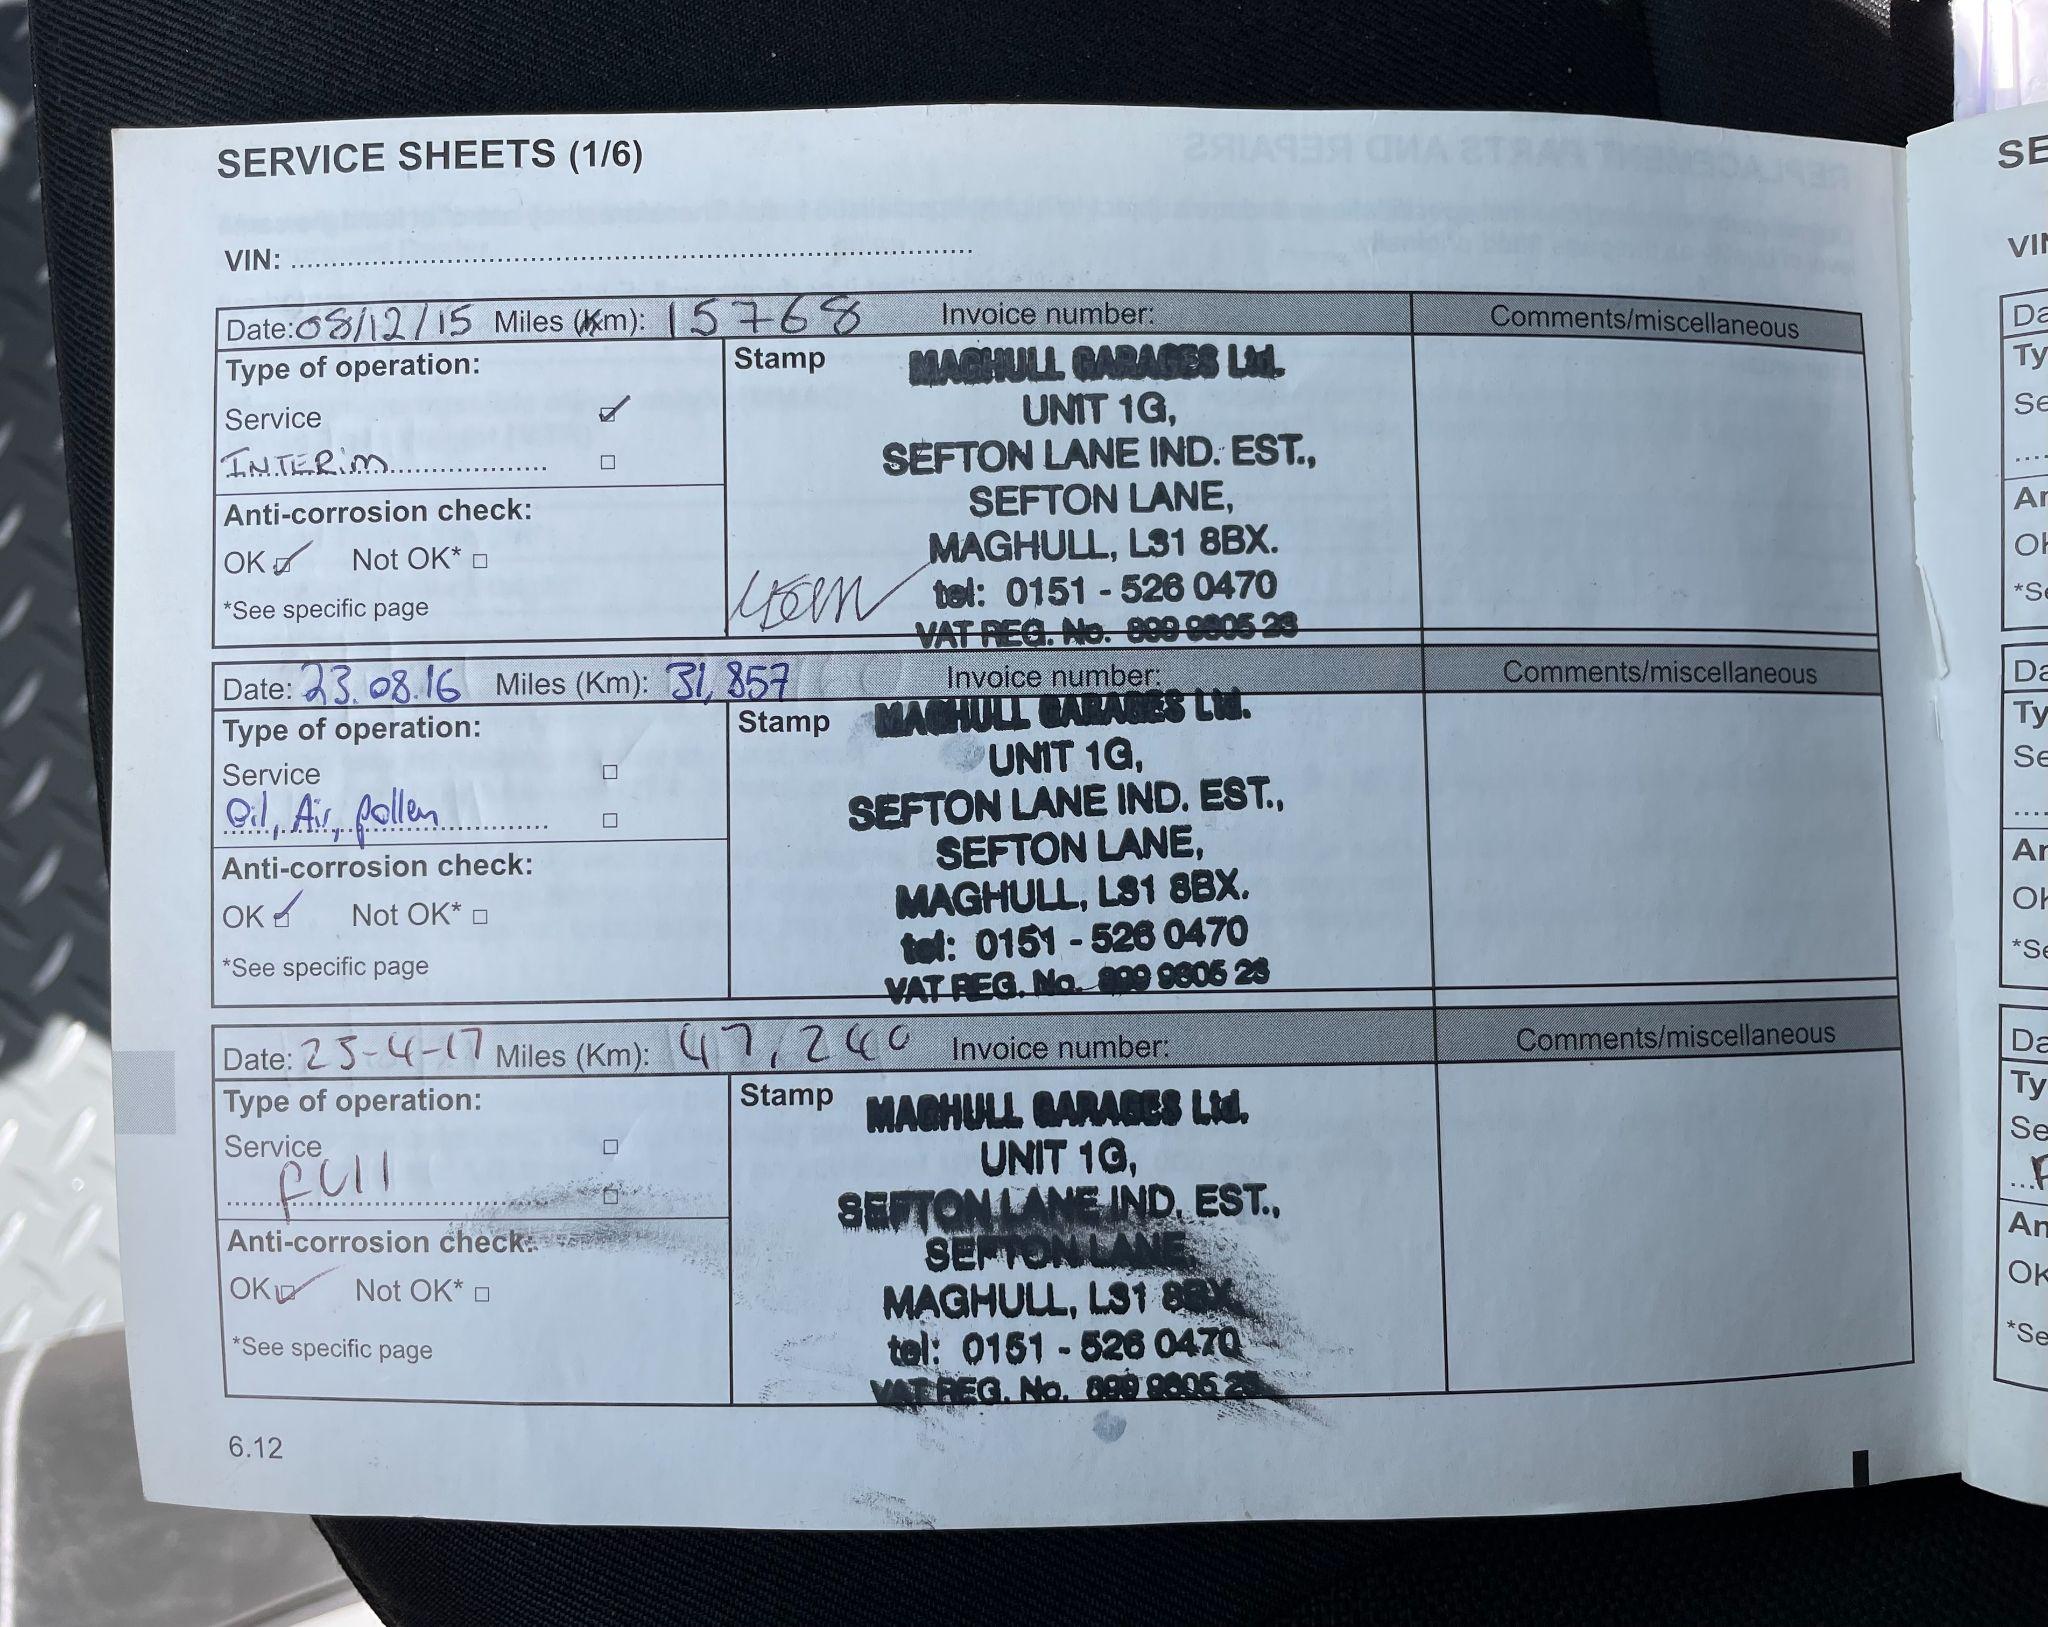 SERVICE SHEETS (1/6)
VIN:
Date: 08/12/15 Miles (Km): 15768 Invoice number: Comments/miscellaneous
Type of operation:
Stamp
Service
INTERIM
Anti-corrosion check:
OK Not OK*
*See specific page
MAGHULL GARAGES Ltd.
UNIT 1G,
SEFTON LANE IND. EST.,
SEFTON LANE,
MAGHULL, L31 8BX.
tel: 0151 - 526 0470
VAT REG. No. 899 9805 23
Date: 23.08.16 Miles (Km): 31,857 Invoice number: Comments/miscellaneous
Type of operation:
Stamp
Service
Oil, Air, pollen
Anti-corrosion check:
OK Not OK*
*See specific page
MAGHULL GARAGES Ltd.
UNIT 1G,
SEFTON LANE IND. EST.,
SEFTON LANE,
MAGHULL, L31 8BX.
tel: 0151 - 526 0470
VAT REG. No. 899 9805 23
Date: 25-4-17 Miles (Km): 47,240 Invoice number: Comments/miscellaneous
Type of operation:
Stamp
Service
full
Anti-corrosion check:
OK Not OK*
*See specific page
MAGHULL GARAGES Ltd.
UNIT 1G,
SEFTON LANE IND. EST.,
SEFTON LANE,
MAGHULL, L31 8BX.
tel: 0151 - 526 0470
VAT REG. No. 899 9805 23
6.12